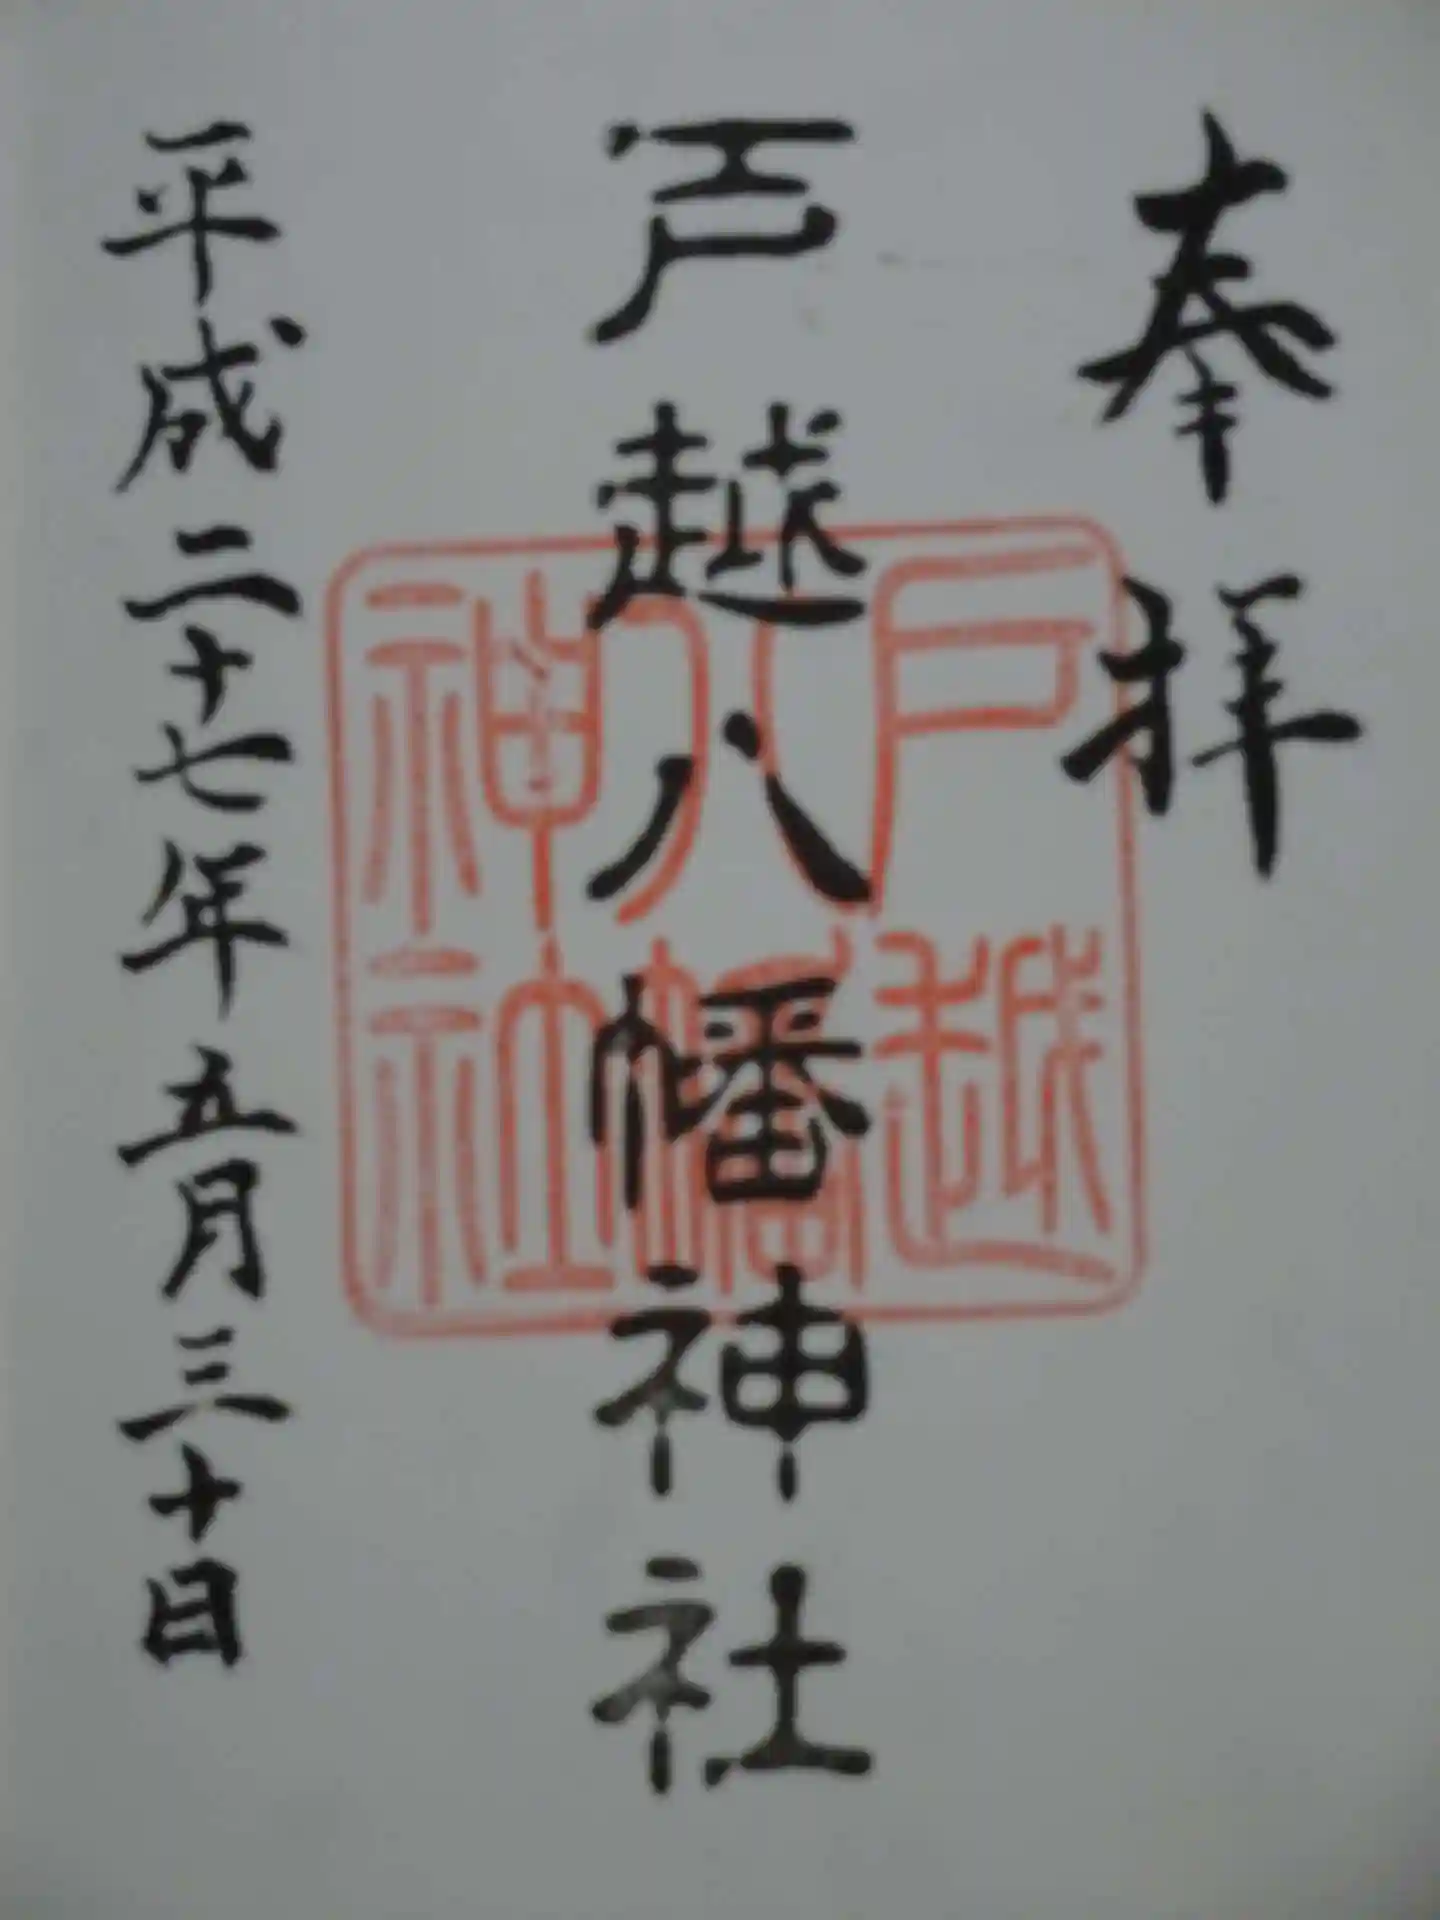 奉拝
戸越八幡神社
戸越
八幡
神社
平成二十七年五月三十日